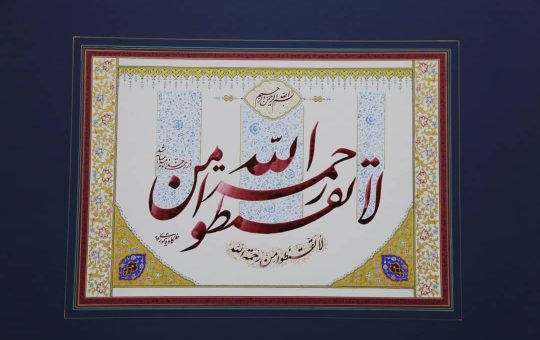 بسم الله الرحمن الرحیم
لا تقنطوا من رحمة الله
لا تقنطوا من رحمة الله